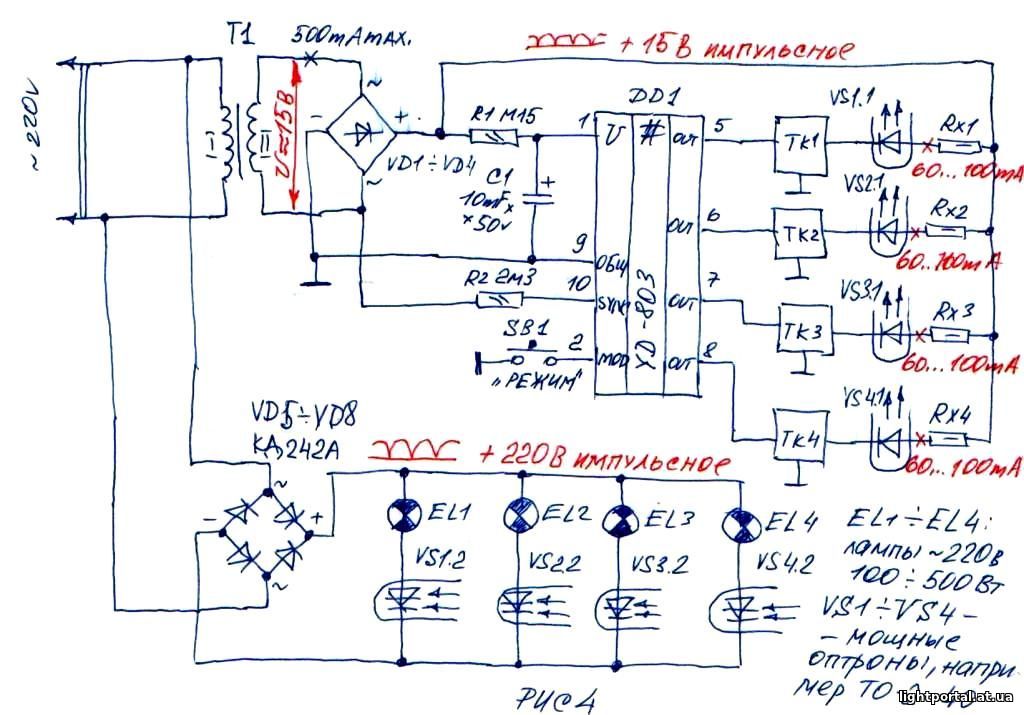 T1
500mA max.
+ 15В импульсное
~ 220V
I
II
U≈15В
~
-
+
~
VD1÷VD4
R1 M15
C1
+
10mFx
×50v
R2 2M3
SB1
„РЕЖИМ"
DD1
1
U
#
OUT
5
OUT
6
9
ОБЩ
10
OUT
7
2
OUT
8
ХD-803
TK1
VS1.1
Rx1
60...100mA
TK2
VS2.1
Rx2
60..100mA
TK3
VS3.1
Rx3
60...100mA
TK4
VS4.1
Rx4
60...100mA
VD5÷VD8
КД242А
+ 220В импульсное
~
-
+
~
EL1
EL2
EL3
EL4
VS1.2
VS2.2
VS3.2
VS4.2
EL1÷EL4:
лампы ~220в
100÷500 Вт
VS1÷VS4 -
- мощные
оптроны, напри-
мер ТО
РИС 4
lightportal.at.ua